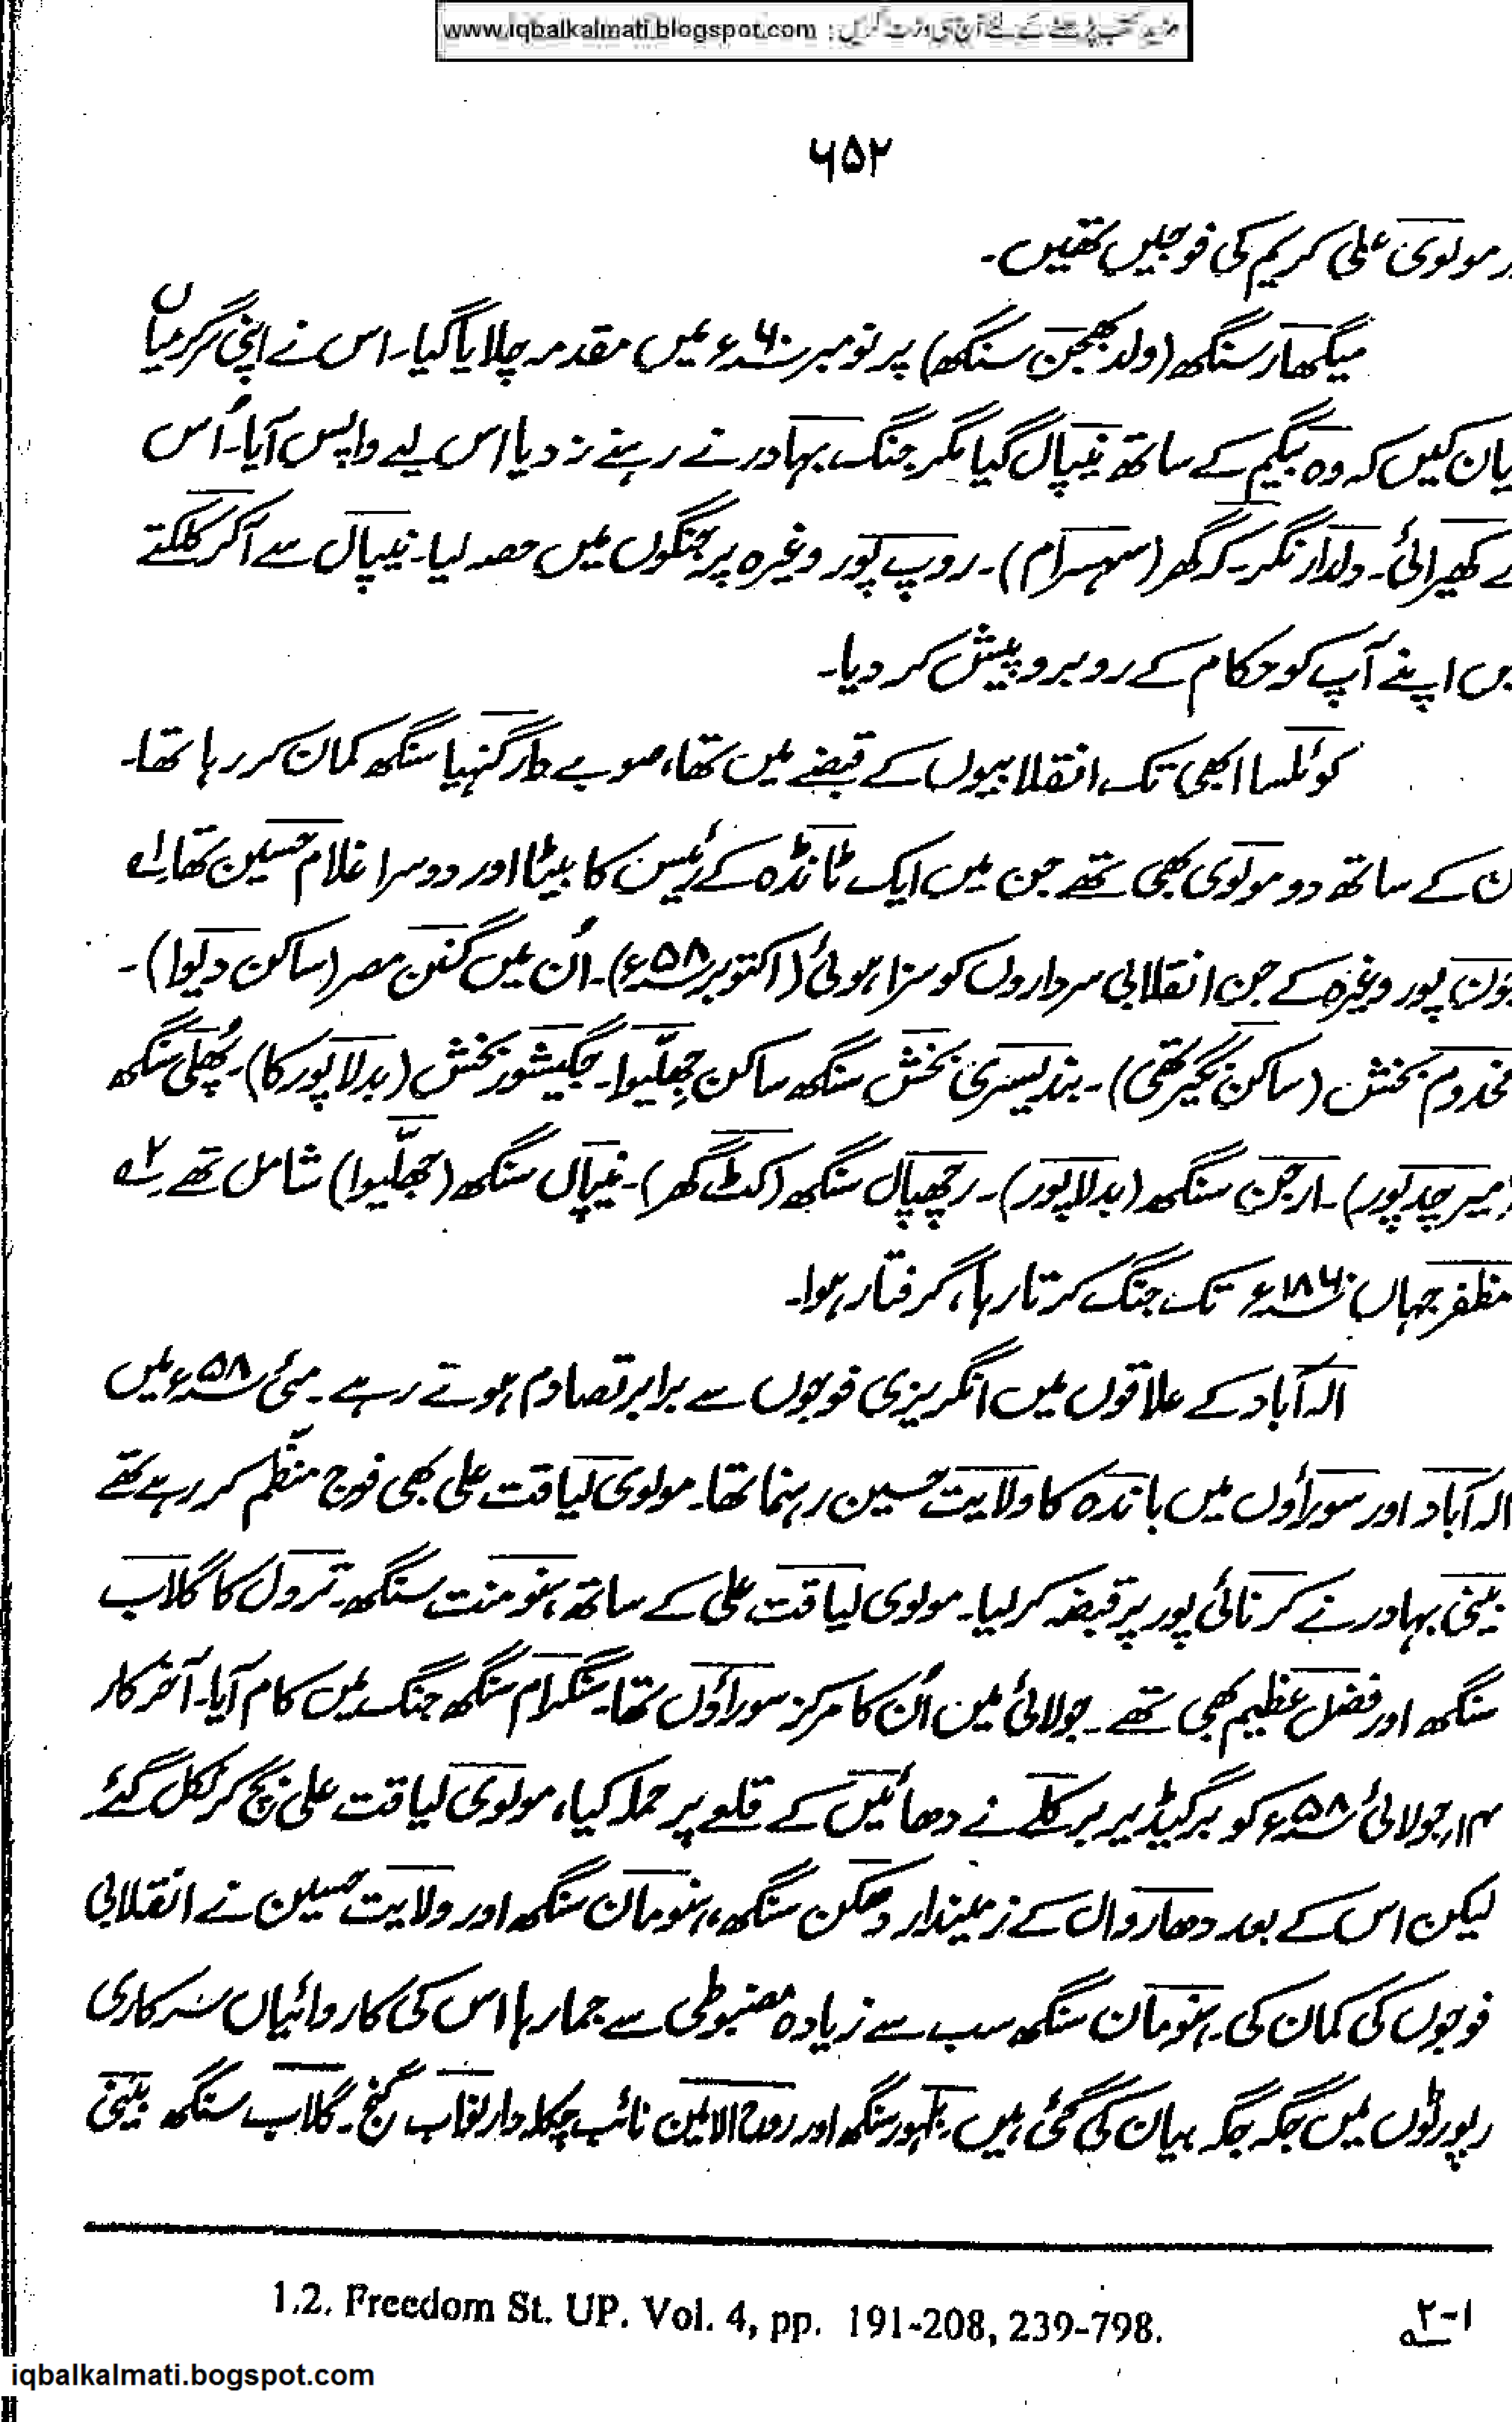 www.iqbalkalmati.blogspot.com : مزید کتب پڑھنے کے لئے آج ہی وزٹ کریں
۶۵۲
ر مولوی علی کریم کی فوجیں تھیں۔
میگھار سنگھ (ولد بھجن سنگھ) پر نومبر ۶۰ء میں مقدمہ چلایا گیا۔ اس نے اپنی سرگرمیاں
یان کیں کہ وہ بیگم کے ساتھ نیپال گیا مگر جنگ بہادر نے رہنے نہ دیا اس لیے واپس آیا۔ اُس
ے کھیرائی۔ دلدار نگر۔ کرگھر (سہسرام)۔ روپ پور وغیرہ پر جنگوں میں حصہ لیا۔ نیپال سے آکر کلکتے
یں اپنے آپ کو حکام کے روبرو پیش کر دیا۔
کوئلسا ابھی تک انقلابیوں کے قبضے میں تھا، صوبے دار گنہیا سنگھ کمان کر رہا تھا۔
ن کے ساتھ دو مولوی بھی تھے جن میں ایک ٹانڈہ کے رئیس کا بیٹا اور دوسرا غلام حسین تھا۔ ۱؎
جون پور وغیرہ کے جن انقلابی سرداروں کو سزا ہوئی (اکتوبر ۵۸ء)۔ اُن میں گنن مصر (ساکن دیوا)۔
مخدوم بخش (ساکن نگیرتھی)۔ بندیسری بخش سنگھ ساکن جھلّیوا۔ جگیشور بخش (بدلا پور کا)۔ پُھلّی سنگھ
(میر چدپور)۔ ارجن سنگھ (بدلاپور)۔ رچھپال سنگھ (کٹ گھر)۔ نیپال سنگھ (جھلّیوا) شامل تھے۔ ۲؎
مظفر جہاں ۱۸۶۰ء تک جنگ کرتا رہا، گرفتار ہوا۔
الہ آباد کے علاقوں میں انگریزی فوجوں سے برابر تصادم ہوتے رہے۔ مئی ۵۸ء میں
الہ آباد اور سوراؤں میں باندہ کا ولایت حسین رہنما تھا۔ مولوی لیاقت علی بھی فوج منظّم کر رہے تھے
بینی بہادر نے کرنائی پور پر قبضہ کر لیا۔ مولوی لیاقت علی کے ساتھ، ہنومنت سنگھ۔ ترول کا گلاب
سنگھ اور فضل عظیم بھی تھے۔ جولائی میں اُن کا مرکز سوراؤں تھا۔ سنگرام سنگھ جنگ میں کام آیا۔ آخر کار
۱۴؍جولائی ۵۸ء کو برگیڈیر برکلے نے دھائیں کے قلعے پر حملہ کیا، مولوی لیاقت علی بچ کر نکل گئے۔
لیکن اس کے بعد دھاروال کے زمیندار دھکن سنگھ، ہنومان سنگھ اور ولایت حسین نے انقلابی
فوجوں کی کمان کی۔ ہنومان سنگھ سب سے زیادہ مضبوطی سے جما رہا اس کی کاروائیاں سرکاری
رپورٹوں میں جگہ جگہ بیان کی گئی ہیں۔ ظہور سنگھ اور روح الامین نائب چکلہ دار نواب گنج۔ گلاب سنگھ بینی
1.2. Freedom St. UP. Vol. 4, pp. 191-208, 239-798. ۱-۲؎
iqbalkalmati.bogspot.com